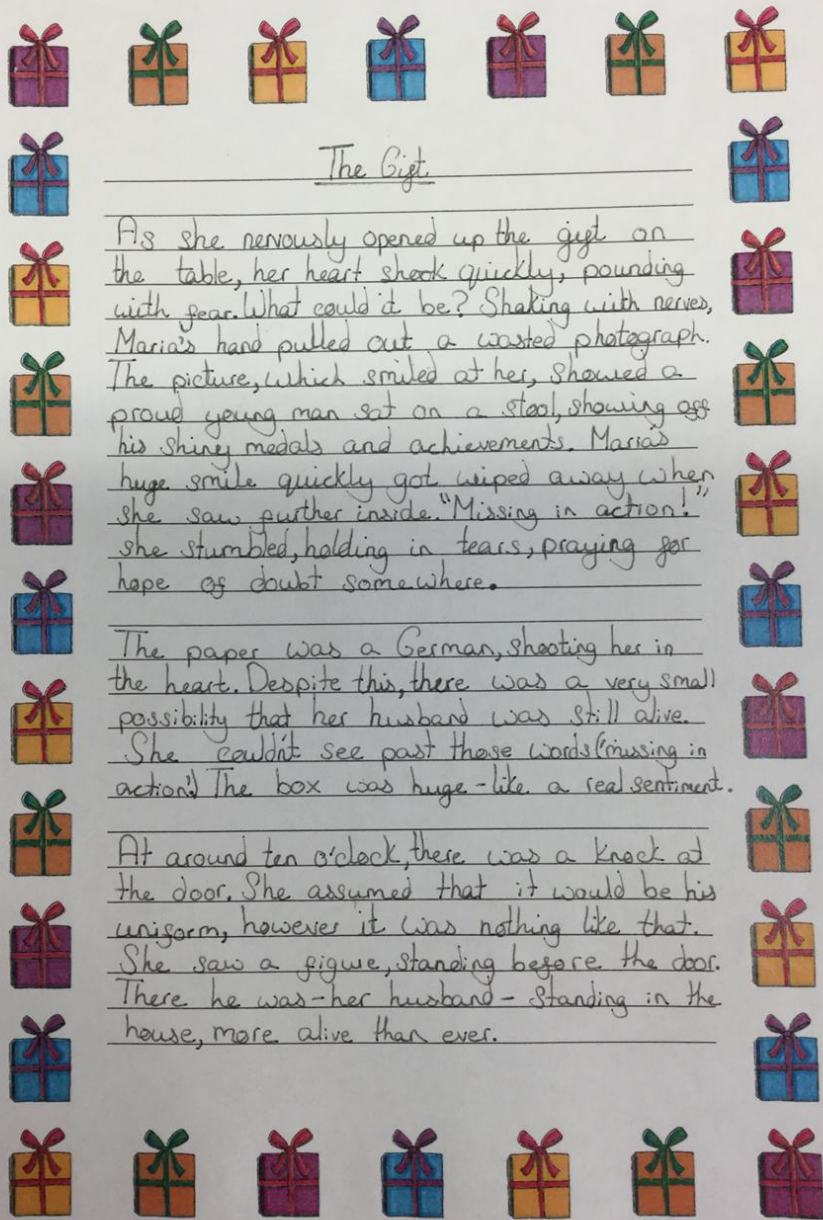 The Gift
As she nervously opened up the gift on
the table, her heart shook quickly, pounding
with fear. What could it be? Shaking with nerves,
Maria's hand pulled out a wasted photograph.
The picture, which smiled at her, showed a
proud young man sat on a stool, showing off
his shiney medals and achievements. Maria's
huge smile quickly got wiped away when
she saw further inside. "Missing in action!"
she stumbled, holding in tears, praying for
hope of doubt somewhere.
The paper was a German, shooting her in
the heart. Despite this, there was a very small
possibility that her husband was still alive.
She couldn't see past those words ('missing in
action'.) The box was huge - like a real sentiment.
At around ten o'clock, there was a knock at
the door. She assumed that it would be his
uniform, however it was nothing like that.
She saw a figure, standing before the door.
There he was - her husband - standing in the
house, more alive than ever.